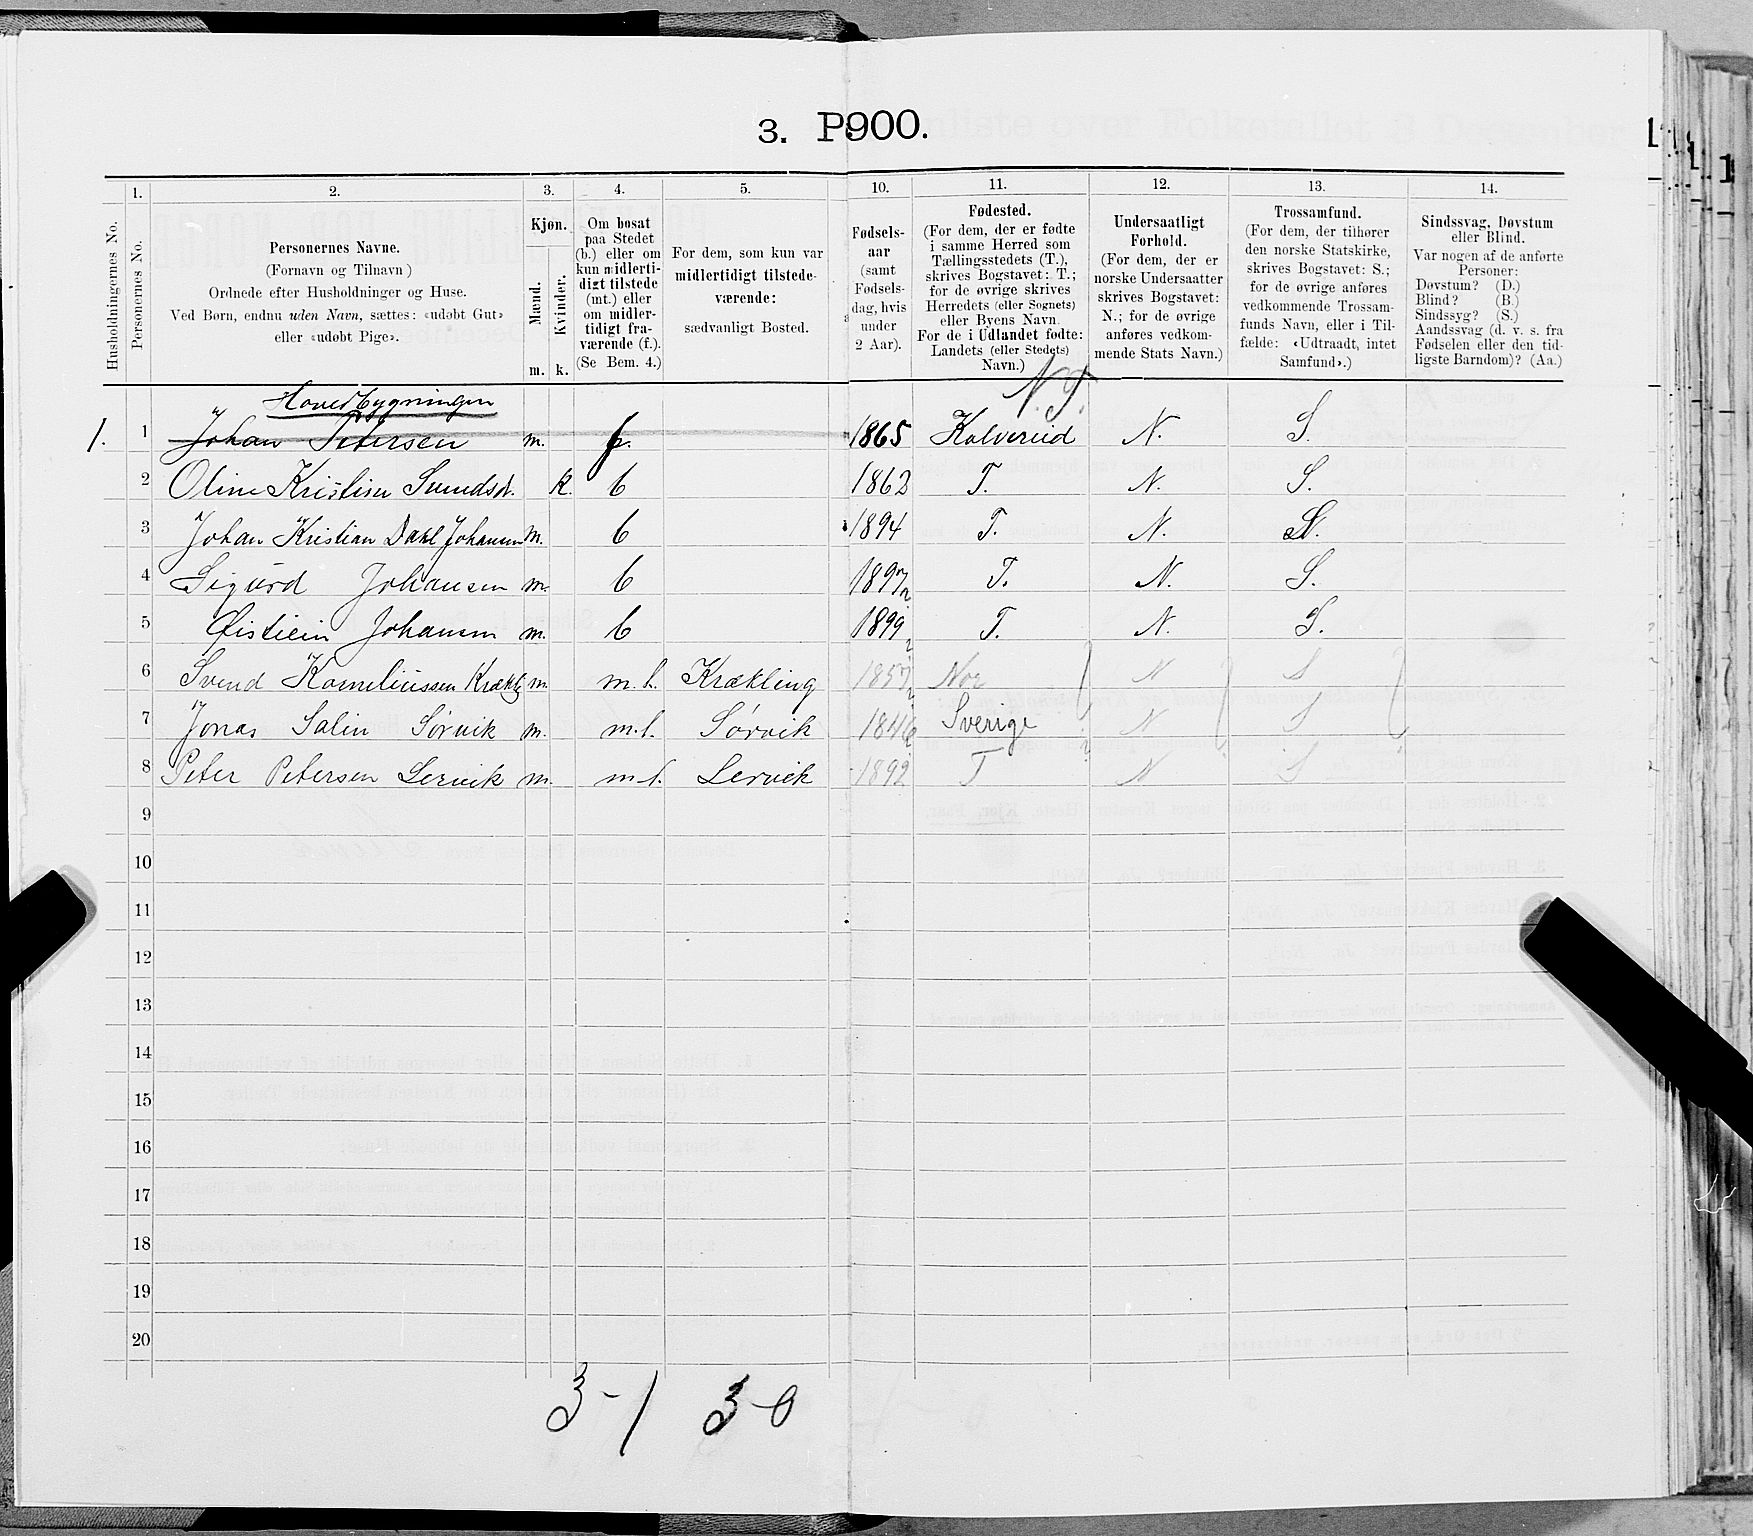 3. P900.
1. 2. 3. 4. 5. 10. 11. 12. 13. 14.
Husholdningernes No.
Personernes No.
Personernes Navne.
(Fornavn og Tilnavn)
Ordnede efter Husholdninger og Huse.
Ved Børn, endnu uden Navn, sættes: «udøbt Gut»
eller «udøbt Pige».
Kjøn.
Mænd.
Kvinder.
m. k.
Om bosat
paa Stedet
(b.) eller om
kun midlerti-
digt tilstede
(mt.) eller
om midler-
tidigt fra-
værende (f.).
(Se Bem. 4.)
For dem, som kun var
midlertidigt tilstede-
værende:
sædvanligt Bosted.
Fødsels-
aar
(samt
Fødsels-
dag, hvis
under
2 Aar).
Fødested.
(For dem, der er fødte
i samme Herred som
Tællingsstedets (T.),
skrives Bogstavet: T.;
for de øvrige skrives
Herredets (eller Sognets)
eller Byens Navn.
For de i Udlandet fødte:
Landets (eller Stedets)
Navn.)
Undersaatligt
Forhold.
(For dem, der er
norske Undersaatter
skrives Bogstavet:
N.; for de øvrige
anføres vedkom-
mende Stats Navn.)
Trossamfund.
(For dem, der tilhører
den norske Statskirke,
skrives Bogstavet: S.;
for de øvrige anføres
vedkommende Trossam-
funds Navn, eller i Til-
fælde: «Udtraadt, intet
Samfund».)
Sindssvag, Døvstum
eller Blind.
Var nogen af de anførte
Personer:
Døvstum? (D.)
Blind? (B.)
Sindssyg? (S.)
Aandssvag (d. v. s. fra
Fødselen eller den tid-
ligste Barndom)? (Aa.)
Hovedbygningen N.T.
1. 1 Johan Petersen m. f. 1865 Kolvereid N. S.
2 Oline Kristine Svendsdt. k. b 1862 T. N. S.
3 Johan Kristian Dahl Johansen m. b 1894 T. N. S.
4 Sigurd Johansen m. b 1897 T. N. S.
5 Øistein Johansen m. b 1899 T. N. S.
6 Svend Korneliussen m. m.t. Krækling 1857 Nor N S
7 Jonas Salin Sørvik m. m.t. Sørvik 1846 Sverige N S
8 Peter Petersen Lervik m. m.t. Lervik 1892 T N S
9
10
11
12
13
14
15
16
17
18
19
20
3-1 3-0